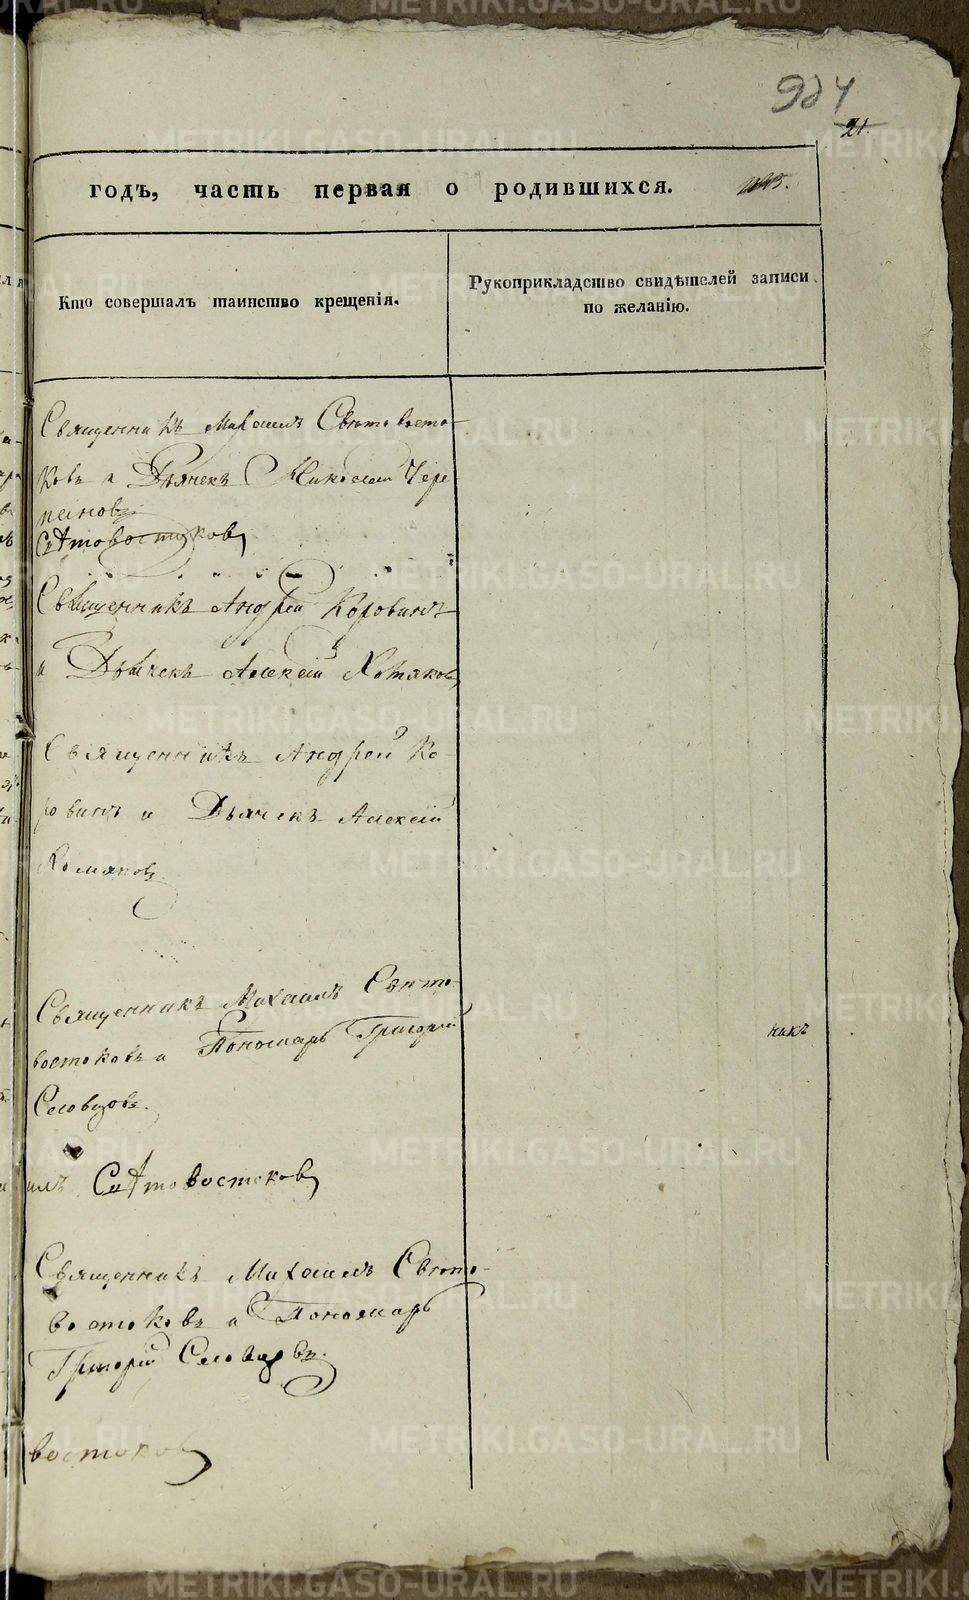 924
21.
годъ, часть первая о родившихся.
Кто совершалъ таинство крещенія.
Рукоприкладство свидѣтелей записи
по желанію.
Священникъ Михаилъ Святовосто-
ковъ и Дьячекъ Николай Чере
пановъ
Святовостоковъ
Священникъ Андрей Коровинъ
и Дьячекъ Алексій Хотяковъ
Священникъ Андрей Ко-
ровинъ и Дьячекъ Алексій
Священникъ Михаилъ Свято-
востоковъ и Пономарь Григорій
Словцовъ.
никъ
илъ Святовостоковъ
Священникъ Михаилъ Свято-
востоковъ и Пономарь
Григорій Словцовъ.
востоковъ
METRIKI.GASO-URAL.RU